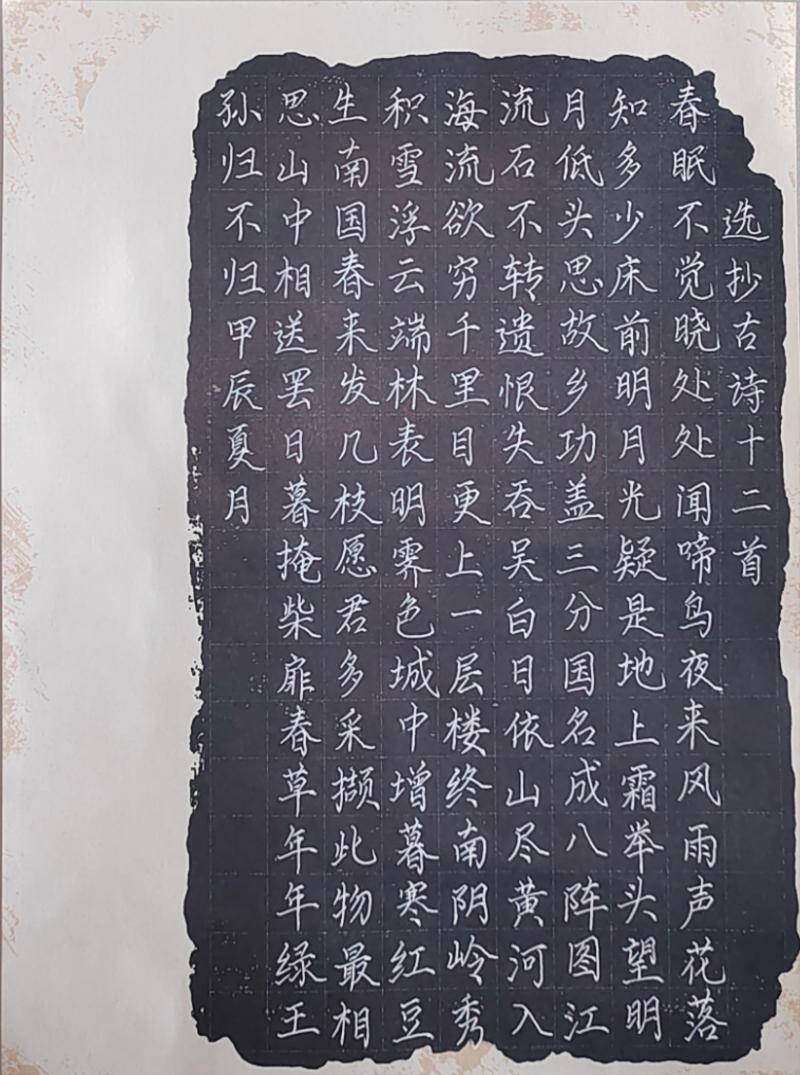 选抄古诗十二首
春眠不觉晓处处闻啼鸟夜来风雨声花落
知多少床前明月光疑是地上霜举头望明
月低头思故乡功盖三分国名成八阵图江
流石不转遗恨失吞吴白日依山尽黄河入
海流欲穷千里目更上一层楼终南阴岭秀
积雪浮云端林表明霁色城中增暮寒红豆
生南国春来发几枝愿君多采撷此物最相
思山中相送罢日暮掩柴扉春草年年绿王
孙归不归甲辰夏月